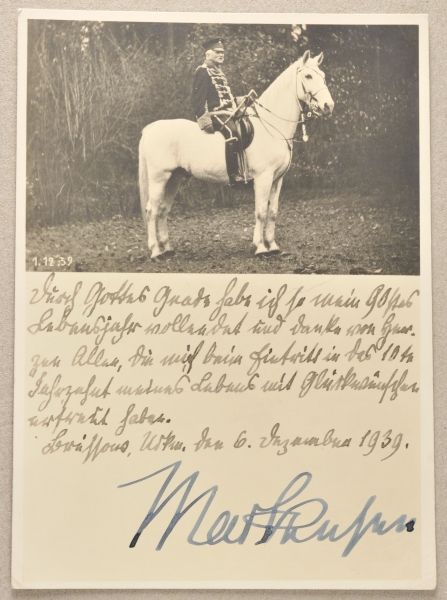 1.12.39
Durch Gottes Gnade habe ich so mein 90stes
Lebensjahr vollendet und danke von Her-
zen Allen, die mich beim Eintritt in das 10te
Jahrzehnt meines Lebens mit Glückwünschen
erfreut haben.
Brüssow, Uckm. den 6. Dezember 1939.
Mackensen